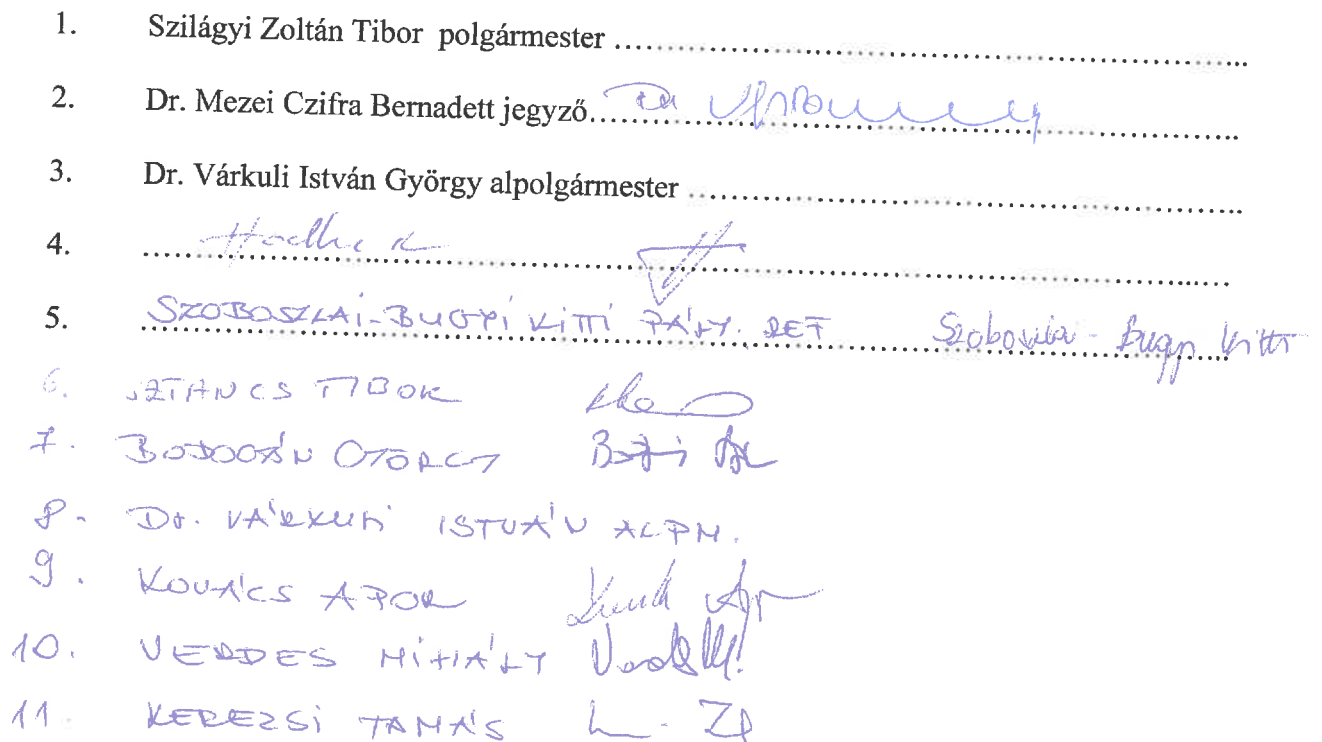 1. Szilágyi Zoltán Tibor polgármester ........................................................
2. Dr. Mezei Czifra Bernadett jegyző........................................................
3. Dr. Várkuli István György alpolgármester ........................................................
4.
5. SZOBOSZLAI-BUGYI KITTI PÁLY. REF Szoboszlai - Bugyi Kitti
6. SZTANCS TIBOR
7. BODOGÁN GYÖRGY
8. Dr. VÁRKULI ISTVÁN ALPM.
9. KOVÁCS APOR
10. VERDES MIHÁLY
11. KEREZSI TAMÁS